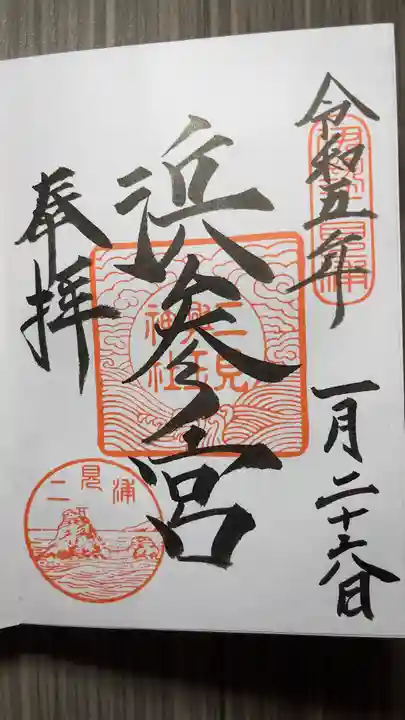 令和五年
一月二十六日
浜参宮
奉拝
二見興玉神社
二見浦